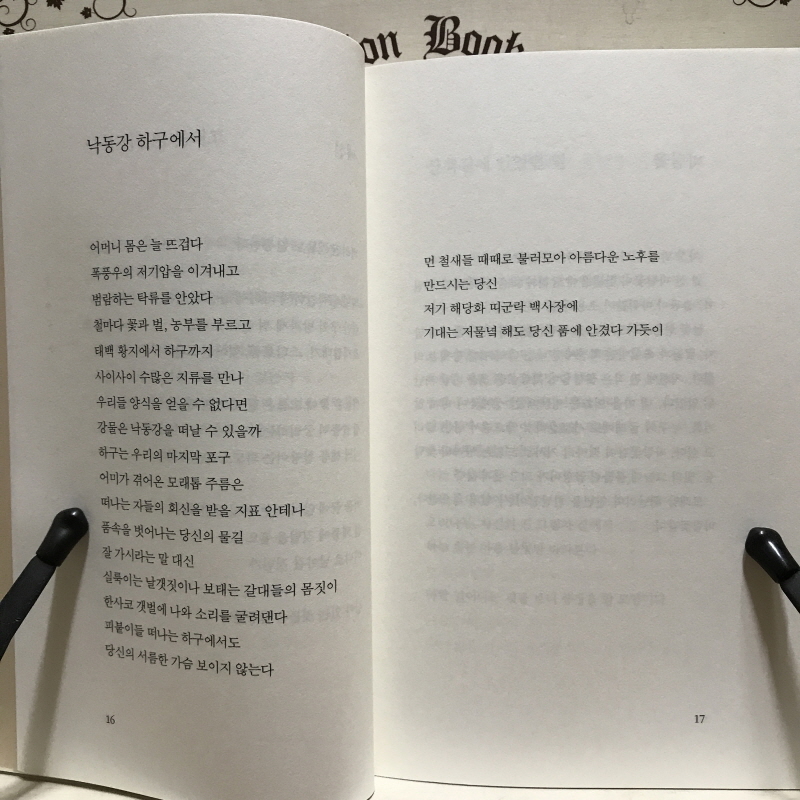 on Book
낙동강 하구에서
어머니 몸은 늘 뜨겁다
폭풍우의 저기압을 이겨내고
범람하는 탁류를 안았다
철마다 꽃과 벌, 농부를 부르고
태백 황지에서 하구까지
사이사이 수많은 지류를 만나
우리들 양식을 얻을 수 없다면
강물은 낙동강을 떠날 수 있을까
하구는 우리의 마지막 포구
어미가 겪어온 모래톱 주름은
떠나는 자들의 회신을 받을 지표 안테나
품속을 벗어나는 당신의 물길
잘 가시라는 말 대신
실룩이는 날갯짓이나 보태는 갈대들의 몸짓이
한사코 갯벌에 나와 소리를 굴려댄다
피붙이들 떠나는 하구에서도
당신의 서름한 가슴 보이지 않는다
16
먼 철새들 때때로 불러모아 아름다운 노후를
만드시는 당신
저기 해당화 띠군락 백사장에
기대는 저물녘 해도 당신 품에 안겼다 가듯이
17